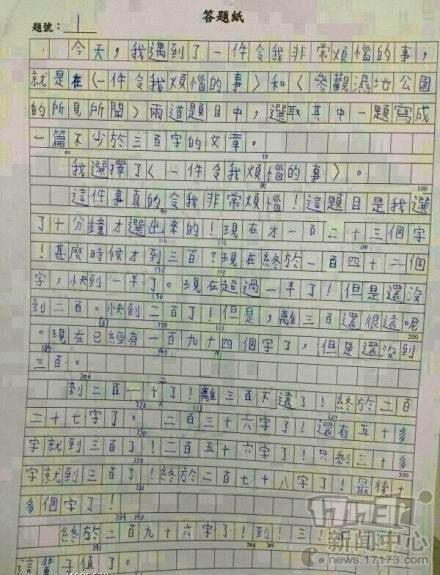 答題紙
題號：1
今天，我遇到了一件令我非常煩惱的事，
就是在〈一件令我煩惱的事〉和〈參觀濕地公園
的所見所聞〉兩道題目中，選取其中一題寫成
一篇不少於三百字的文章。
我選擇了〈一件令我煩惱的事〉。
這件事真的令我非常煩惱！這題目是我選
了十分鐘才選出來的！現在才一百二十三個字
！甚麼時候才到三百？現在終於一百四十二個
字，快到一半了。現在超過一半了！但是還沒
到二百。快到二百了！但是，離三百還很遠。
。現在已經有一百九十四個字了，但是還沒到
三百。
到二百一十了！離三百不遠了！終於二百
二十七字了。二百三十六字了！還有五十多
字就到三百了！二百五十六字了！只剩三十多
字就到三百了！終於二百七十八字了！最後十
多個字了！
終於二百九十六字了！到！三！
這輩子值了。
17173.com
新闻中心
news.17173.com